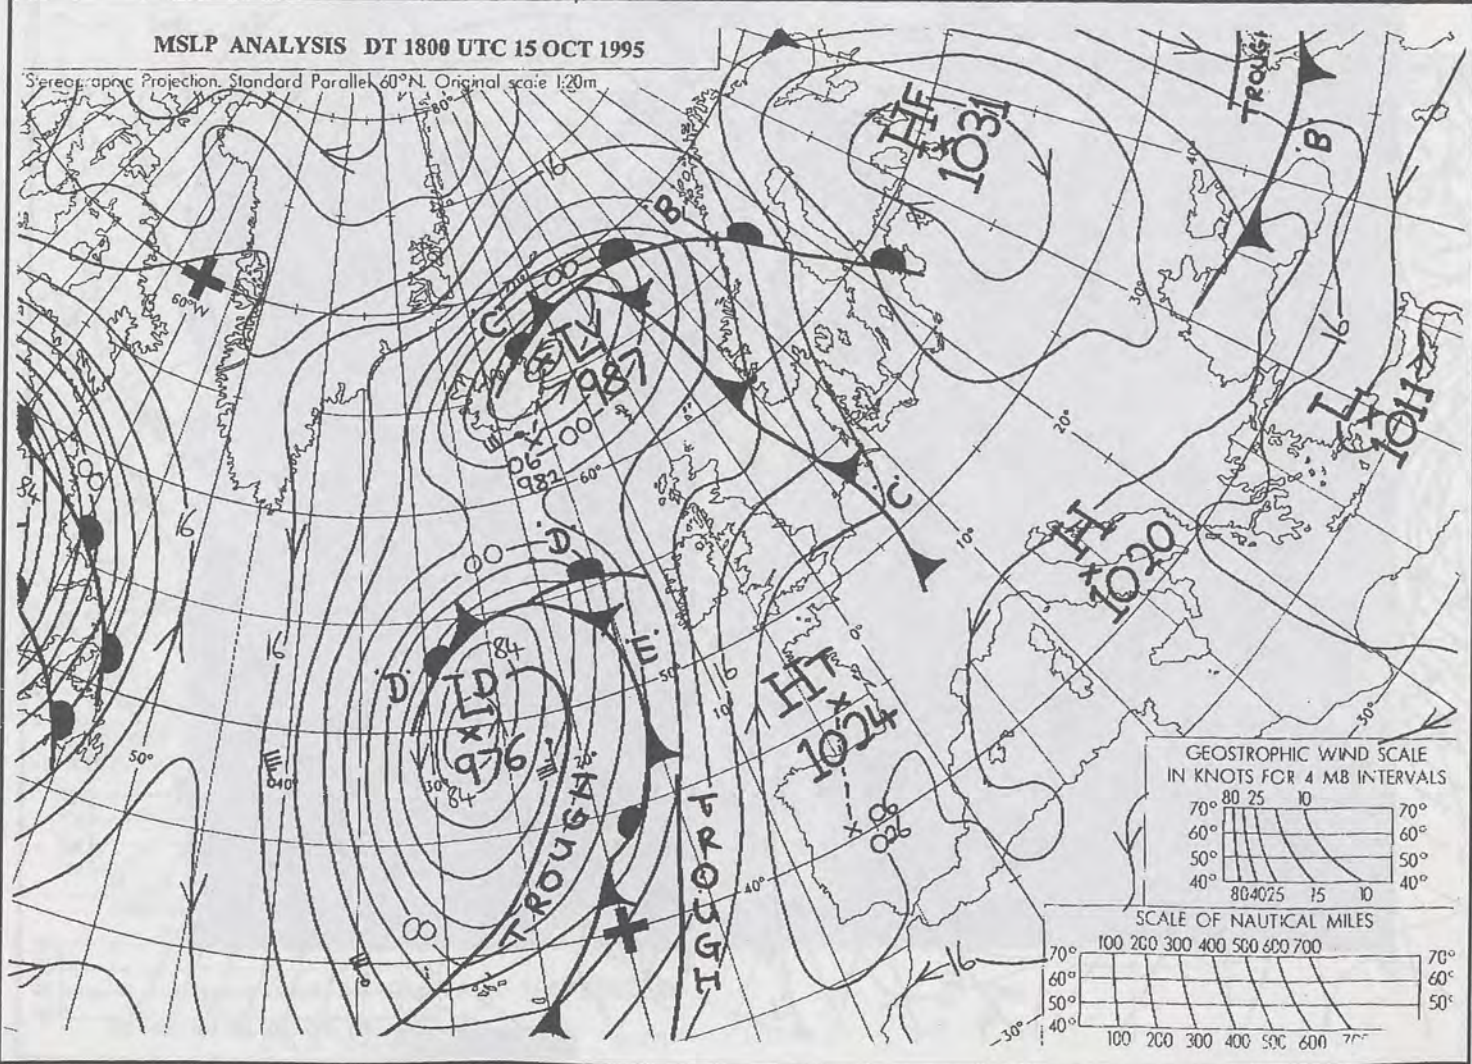 MSLP ANALYSIS DT 1800 UTC 15 OCT 1995
Stereographic Projection. Standard Parallel 60°N. Original scale 1:20m
80°
TROUGH
HF
1031
40°
'B'
16
B
60°W
00
C
LV
987
30°
16
L
1011
20°
84
00
00
06
982
60°
C
16
'D'
00
10°
H
1020
'E'
84
'D'
LD
976
50°
0°
16
HT
1024
10°
30°
50°
40°
30°
84
20°
TROUGH
TROUGH
06
026
40°
00
16
30°
GEOSTROPHIC WIND SCALE
IN KNOTS FOR 4 MB INTERVALS
80 25 10
70° 70°
60° 60°
50° 50°
40° 40°
80 40 25 15 10
SCALE OF NAUTICAL MILES
100 200 300 400 500 600 700
70° 70°
60° 60°
50° 50°
40°
100 200 300 400 500 600